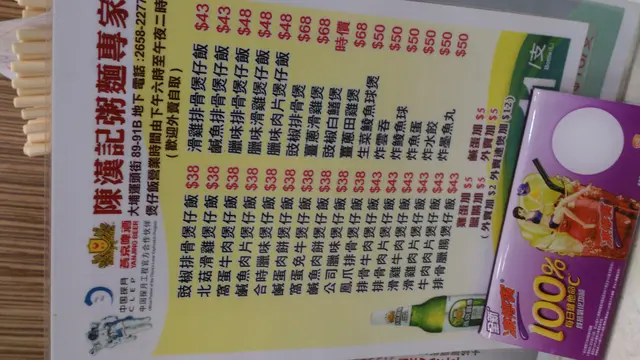 陳漢記粥麵專家
大埔運頭街 89-91B 地下 電話:2658-2277
煲仔飯營業時間由下午六時至午夜二時
(歡迎外賣自取)
燕京啤酒
YANJING BEER
中国探月
CLEP
中国探月工程官方合作伙伴
豉椒排骨煲仔飯 $38
北菇滑雞煲仔飯 $38
窩蛋牛肉煲仔飯 $38
鹹魚肉片煲仔飯 $38
合時臘味煲仔飯 $38
鹹蛋肉餅煲仔飯 $38
窩蛋免牛煲仔飯 $38
鹹魚肉餅煲仔飯 $38
公司臘味煲仔飯 $38
鳳爪排骨煲仔飯 $38
排骨牛肉煲仔飯 $43
排骨肉片煲仔飯 $43
滑雞牛肉煲仔飯 $43
滑雞肉片煲仔飯 $43
牛肉肉片煲仔飯 $43
排骨臘腸煲仔飯 $43
滑雞排骨煲仔飯 $43
鹹魚排骨煲仔飯 $43
臘味排骨煲仔飯 $48
臘味滑雞煲仔飯 $48
臘味肉片煲仔飯 $48
豉椒排骨煲 $68
薑蔥滑雞煲 $68
豉椒白鱔煲 時價
薑蔥田雞煲 $68
生菜鯪魚球煲 $50
炸雲吞 $50
炸鯪魚球 $50
炸魚蛋 $50
炸水餃 $50
炸墨魚丸 $50
雞蛋加 $5
鹹蛋加 $5
外賣加 $5
(外賣加 $2 外賣連煲加 $12)
/支
100%
每日維他命C